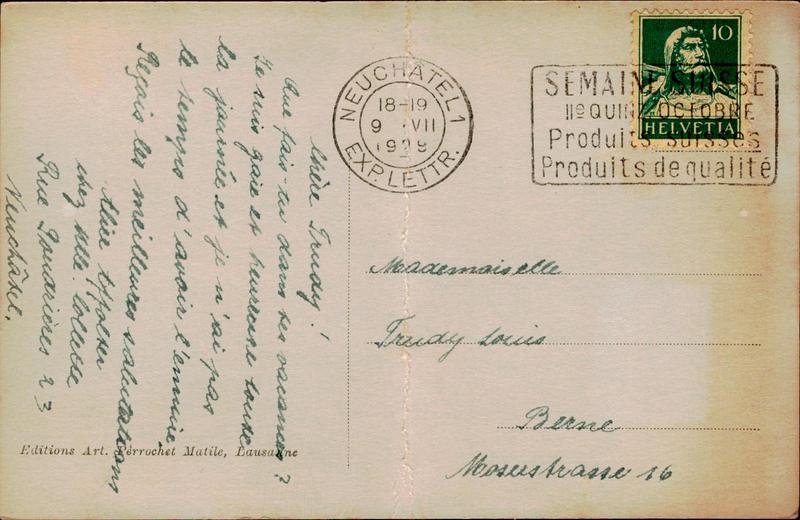 Chère Trudy!
Que fais tu dans tes vacances?
Je suis gaie et heureuse toute
la journée et je n'ai pas
le temps d'avoir l'ennuie,
Reçois les meilleures salutations
Alice
chez Mlle.
Rue 23
Neuchâtel.
Editions Art. Perrochet Matile, Lausanne
NEUCHÂTEL 1
18-19
9 VII
1929
EXP. LETTR.
10
HELVETIA
SEMAINE SUISSE
IIe QUINZ. OCTOBRE
Produits suisses
Produits de qualité
Mademoiselle
Trudy Louis
Berne
Moserstrasse 16